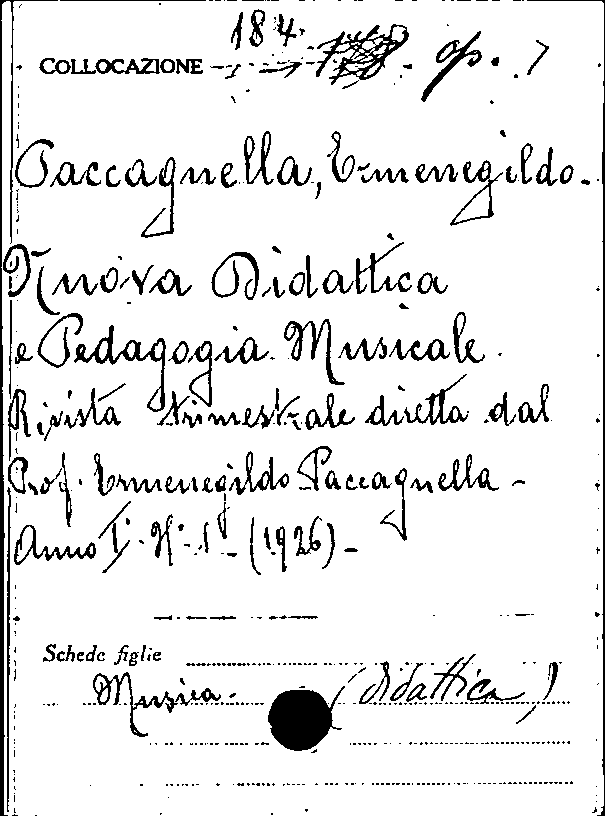 184.
COLLOCAZIONE op. 7
Paccagnella, Ermenegildo.
Nuova Didattica
e Pedagogia Musicale.
Rivista trimestrale diretta dal
Prof. Ermenegildo Paccagnella -
Anno I. N. 1 - (1926) -
Schede figlie
Musica. (didattica)